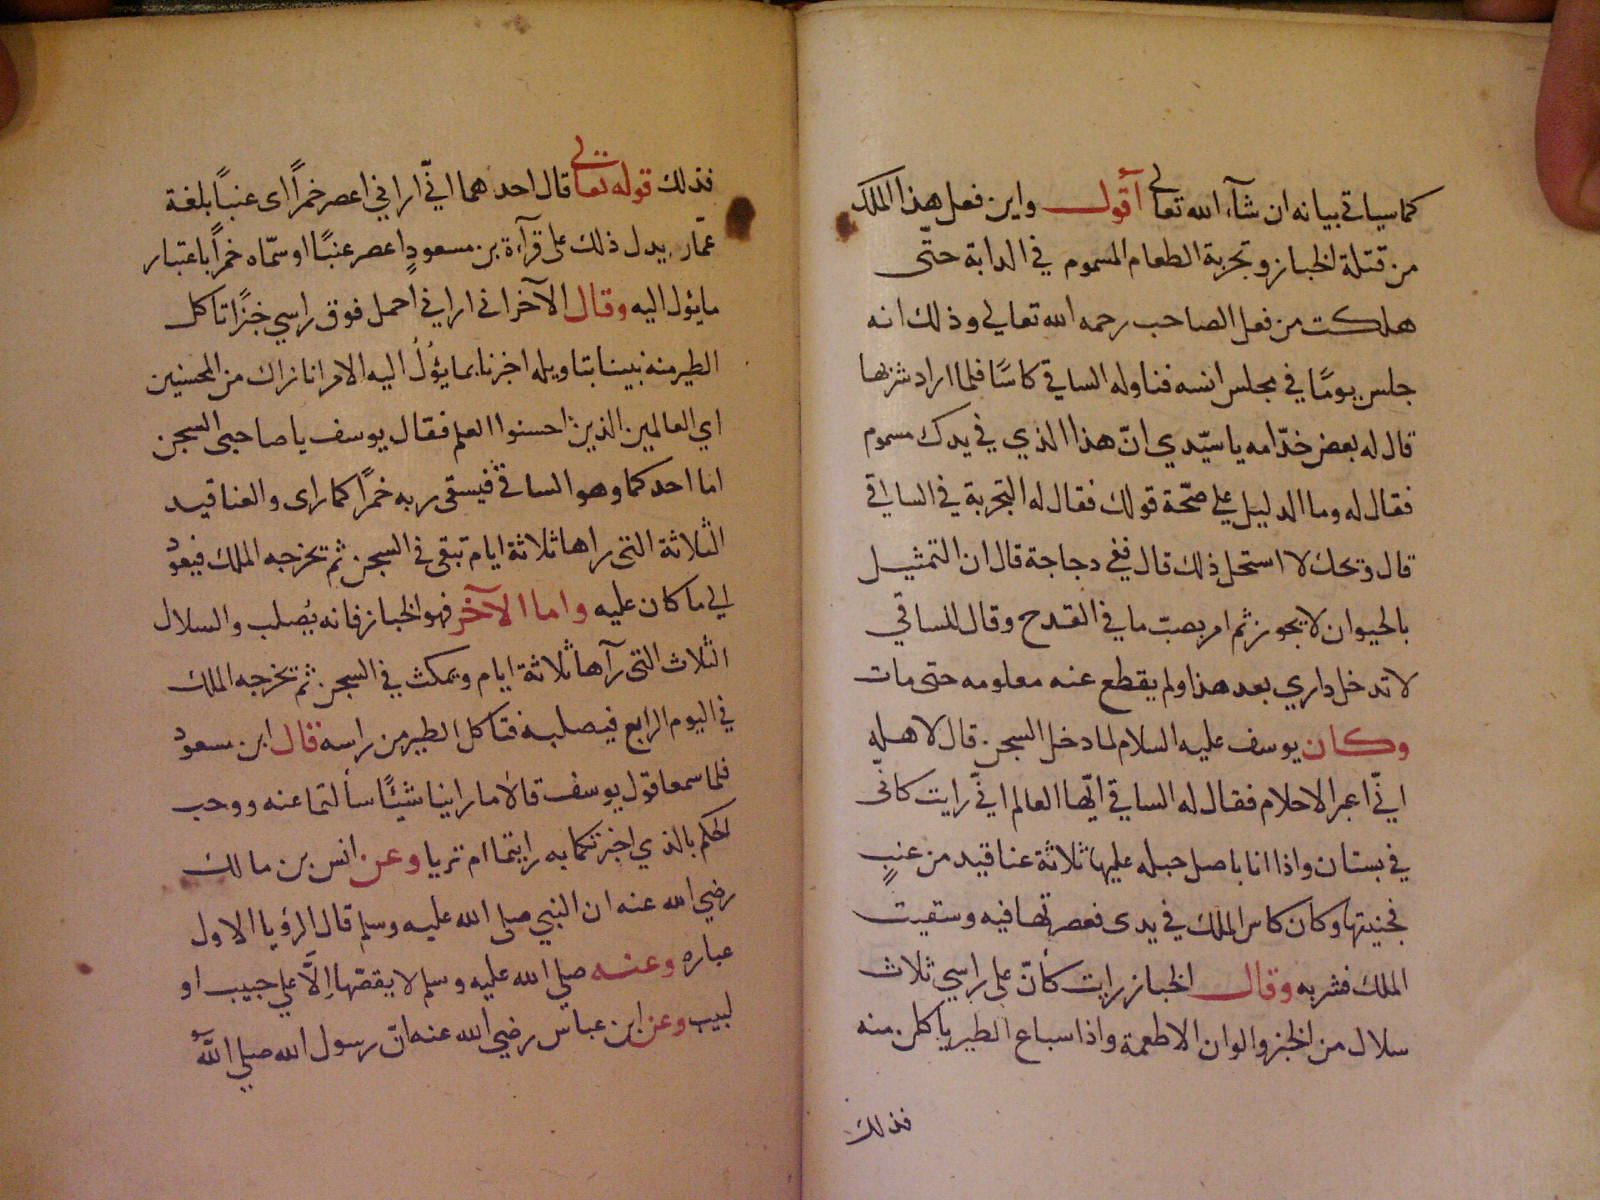 كما سياتي بيانه ان شآء الله تعالى أقول واين فعل هذا الملك
من قتلة الخباز وتجربة الطعام المسموم في الدابة حتّى
هلكت من فعل الصاحب رحمه الله تعالي وذلك انه
جلس يومًا في مجلس انسه فناوله الساقي كاسًا فلما اراد شربها
قال له بعض خدّامه يا سيّدي انّ هذا الذي في يدك مسموم
فقال له وما الدليل علي صحّة قولك فقال له التجربة في الساقي
قال ويحك لا استحل ذلك قال ففي دجاجة قال ان التمثيل
بالحيوان لا يجوز ثم امر بصبّ ما في القدح وقال للساقي
لا تدخل داري بعد هذا ولم يقطع عنه معلومه حتى مات
وكان يوسف عليه السلام لما دخل السجن قال لاهله
انّي اعبر الاحلام فقال له الساقي ايّها العالم انّي رايت كانّي
في بستان واذا انا باصل حبله عليها ثلاثة عناقيد من عنبٍ
فجنيتها وكان كاس الملك في يدى فعصرتها فيه وسقيت
الملك فشربه وقال الخباز رايت كأنّ على راسي ثلاث
سلال من الخبز والوان الاطعمة واذا سباع الطير ياكلن منه
فذلك
فذلك قوله تعالى قال احدهما انّي اراني اعصر خمرًا اى عنبًا بلغة
عمّار يدل ذلك على قرآءة بن مسعودٍ اعصر عنبًا او سمّاه خمرًا باعتبار
ما يئول اليه وقال الآخر اني اراني احمل فوق راسي خبزًا تاكل
الطير منه نبينا بتاويله اخبرنا بما يؤُلُ اليه الامر انا نراك من المحسنين
اي العالمين الذين احسنوا العلم فقال يوسف يا صاحبى السجن
اما احدكما وهو الساقي فيسقى ربه خمرًا كما راى والعناقيد
الثلاثة التى راها ثلاثة ايام تبقى في السجن ثم يخرجه الملك فيعود
الي ما كان عليه واما الآخر فهو الخباز فانه يُصلب والسلال
الثلاث التى رآها ثلاثة ايام ويمكث في السجن ثم يخرجه الملك
في اليوم الرابع فيصلبه فتاكل الطير من راسه قال ابن مسعود
فلما سمعا قول يوسف قالا ما راينا شيئًا سألتما عنه ووجب
الحكم بالذي اخبرتكما به رايتما ام تريا وعن انس بن مالك
رضي الله عنه ان النبي صلى الله عليه وسلم قال الرؤيا الاول
عباره وعنه صلي الله عليه وسلم لا يقصّها إلّا علي حبيب او
لبيب وعن ابن عباس رضي الله عنه انّ رسول الله صلي اللهُ